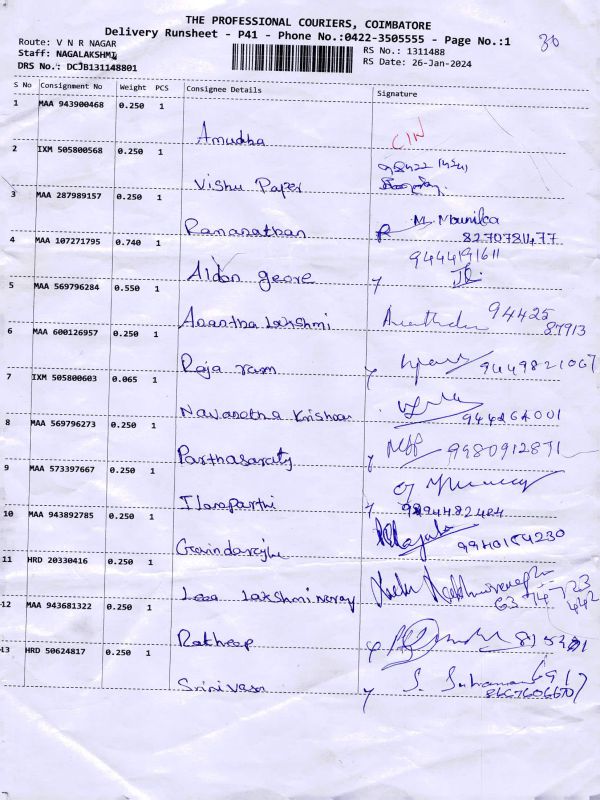 THE PROFESSIONAL COURIERS, COIMBATORE
Delivery Runsheet - P41 - Phone No.:0422-3505555 - Page No.:1
30
Route: V N R NAGAR
RS No.: 1311488
Staff: NAGALAKSHMI
RS Date: 26-Jan-2024
DRS No.: DCJB131148801
S No Consignment No Weight PCS Consignee Details Signature
1 MAA 943900468 0.250 1
Amudha CIN
2 IXM 505800568 0.250 1
Vishu Paper
3 MAA 287989157 0.250 1
M. Mounika
Ramanathan 8270781477
4 MAA 107271795 0.740 1
9444191611
Aldon geore
5 MAA 569796284 0.550 1
Anantha Lakshmi 94425
87913
6 MAA 600126957 0.250 1
Raja ram 9449821067
7 IXM 505800603 0.065 1
Navaneetha Krishnan 944264001
8 MAA 569796273 0.250 1
Parthasaraty 9980912871
9 MAA 573397667 0.250 1
Ilamparthi 9894482484
10 MAA 943892785 0.250 1
Govindarajhu 9940154230
11 HRD 20330416 0.250 1
Leea Lakshmi naray 63 74 723
442
12 MAA 943681322 0.250 1
Ratheep
13 HRD 50624817 0.250 1
Srinivasa S.